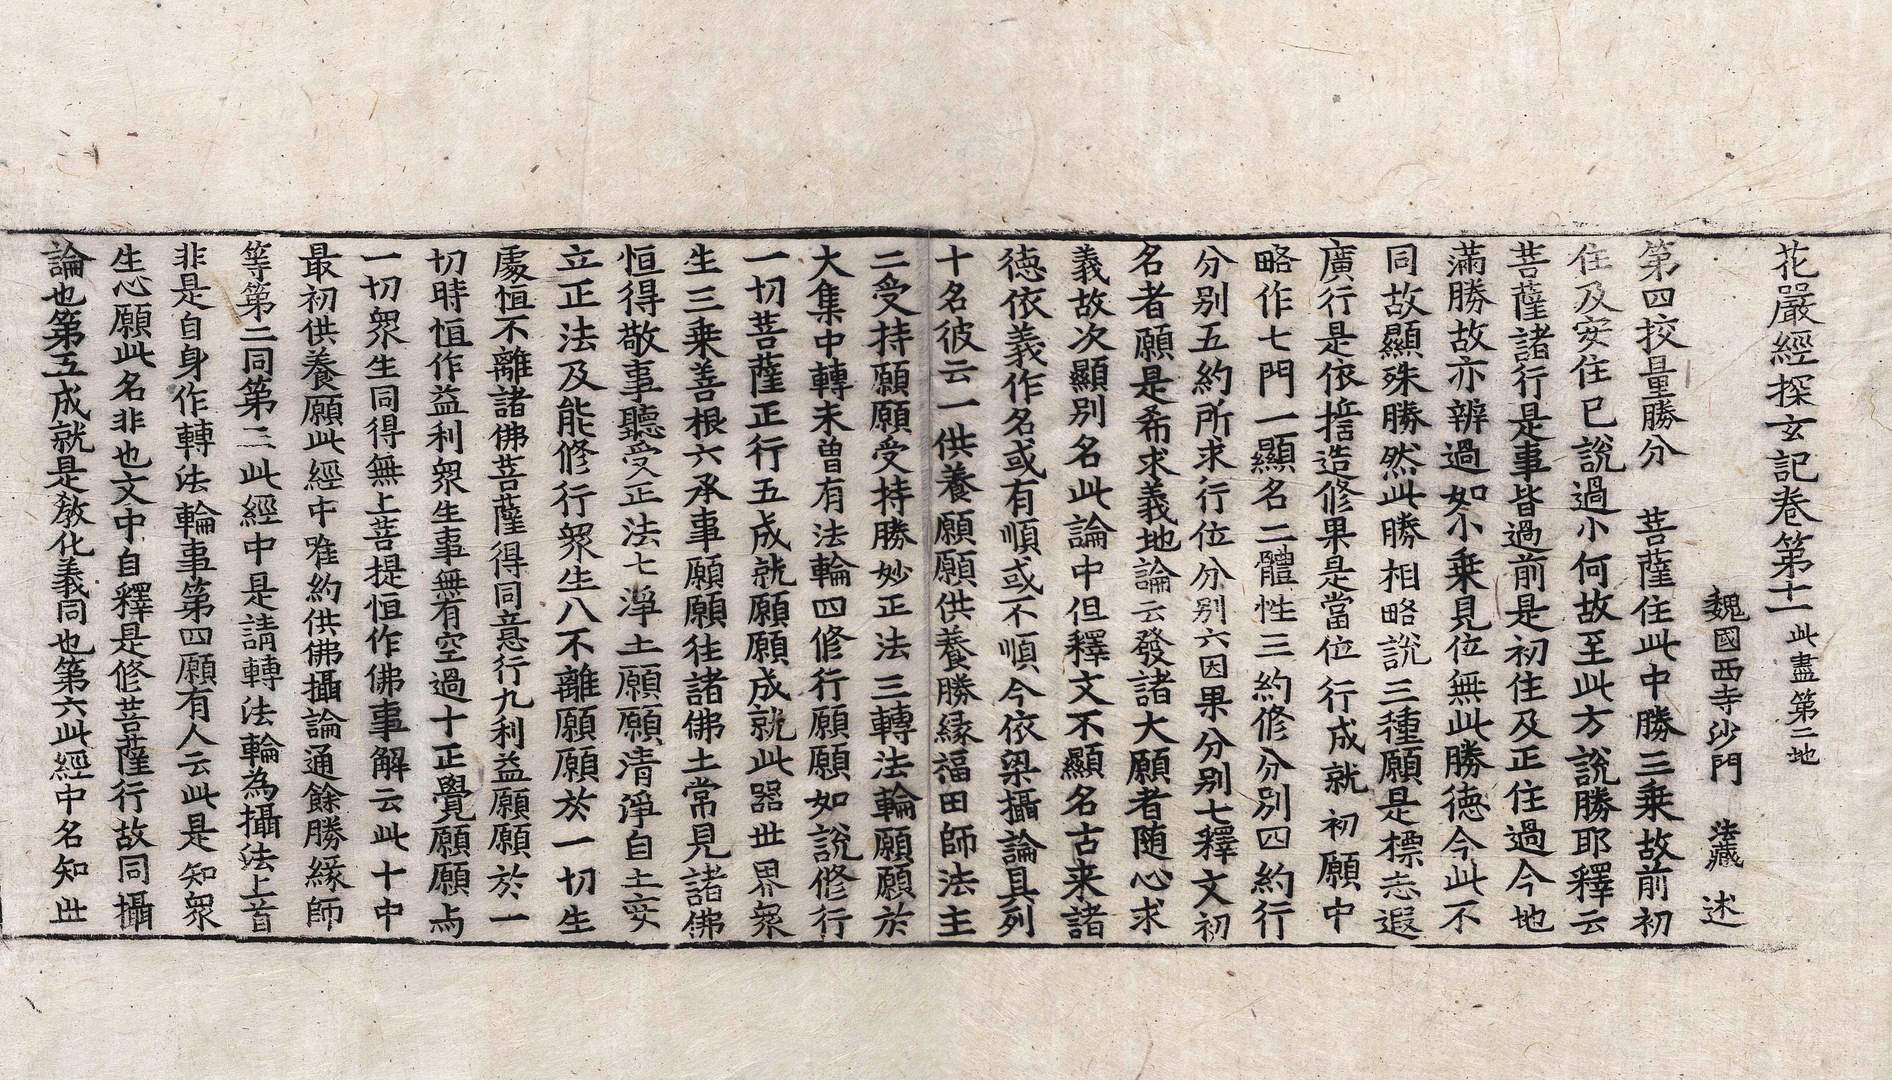 花嚴經探玄記卷第十一 此盡第二地
魏國西寺沙門 法藏 述
第四挍量勝分 菩薩住此中勝三乗故前初
住及安住已說過小何故至此方說勝耶釋云
菩薩諸行是事皆過前是初住及正住過今地
滿勝故亦辨過如小乗見位無此勝德今此不
同故顯殊勝然此勝相略說三種願是標志遐
廣行是依誓造修果是當位行成就初願中
略作七門一顯名二體性三約修分別四約行
分別五約所求行位分別六因果分別七釋文初
名者願是希求義地論云發諸大願者随心求
義故次顯別名此論中但釋文不顯名古来諸
德依義作名或有順或不順今依梁攝論具列
十名彼云一供養願願供養勝緣福田師法主
二受持願願受持勝妙正法三轉法輪願願於
大集中轉未曽有法輪四修行願願如說修行
一切菩薩正行五成就願願成就此器世界衆
生三乗善根六承事願願往諸佛土常見諸佛
恒得敬事聽受正法七淨土願願清淨自土安
立正法及能修行衆生八不離願願於一切生
處恒不離諸佛菩薩得同意行九利益願願於一
切時恒作益利衆生事無有空過十正覺願願與
一切衆生同得無上菩提恒作佛事解云此十中
最初供養願此經中唯約供佛攝論通餘勝緣師
等第二同第三此經中是請轉法輪為攝法上首
非是自身作轉法輪事第四願有人云此是知衆
生心願此名非也文中自釋是修菩薩行故同攝
論也第五成就是教化義同也第六此經中名知世